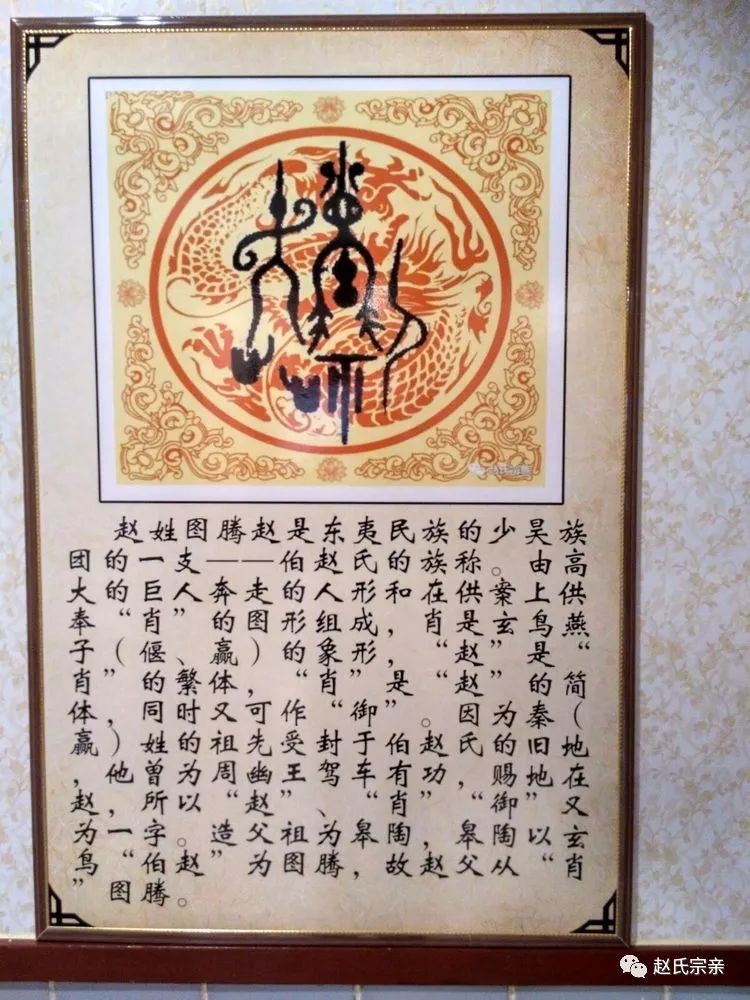 赵姓图腾赵是东夷民族的少昊族
团的一支——伯赵氏的族称。由高
大的巨人奔走的人形和在供案上供
奉“肖”的图形组成，肖是玄鸟燕
子（偃、赢）的象形，“赵”是“
肖”的繁体，“肖”是“赵”的简
体，同时又可作“御”。因为秦（
赢）姓的祖先受封于伯赵氏的旧地
，他曾为周幽王驾车有功，赐地在
赵，所以“赵”、“肖”“御”又
为一字。造父祖为皋陶，皋陶以玄
鸟“伯赵”为图腾，故赵父从“肖
”图腾。
赵氏宗亲